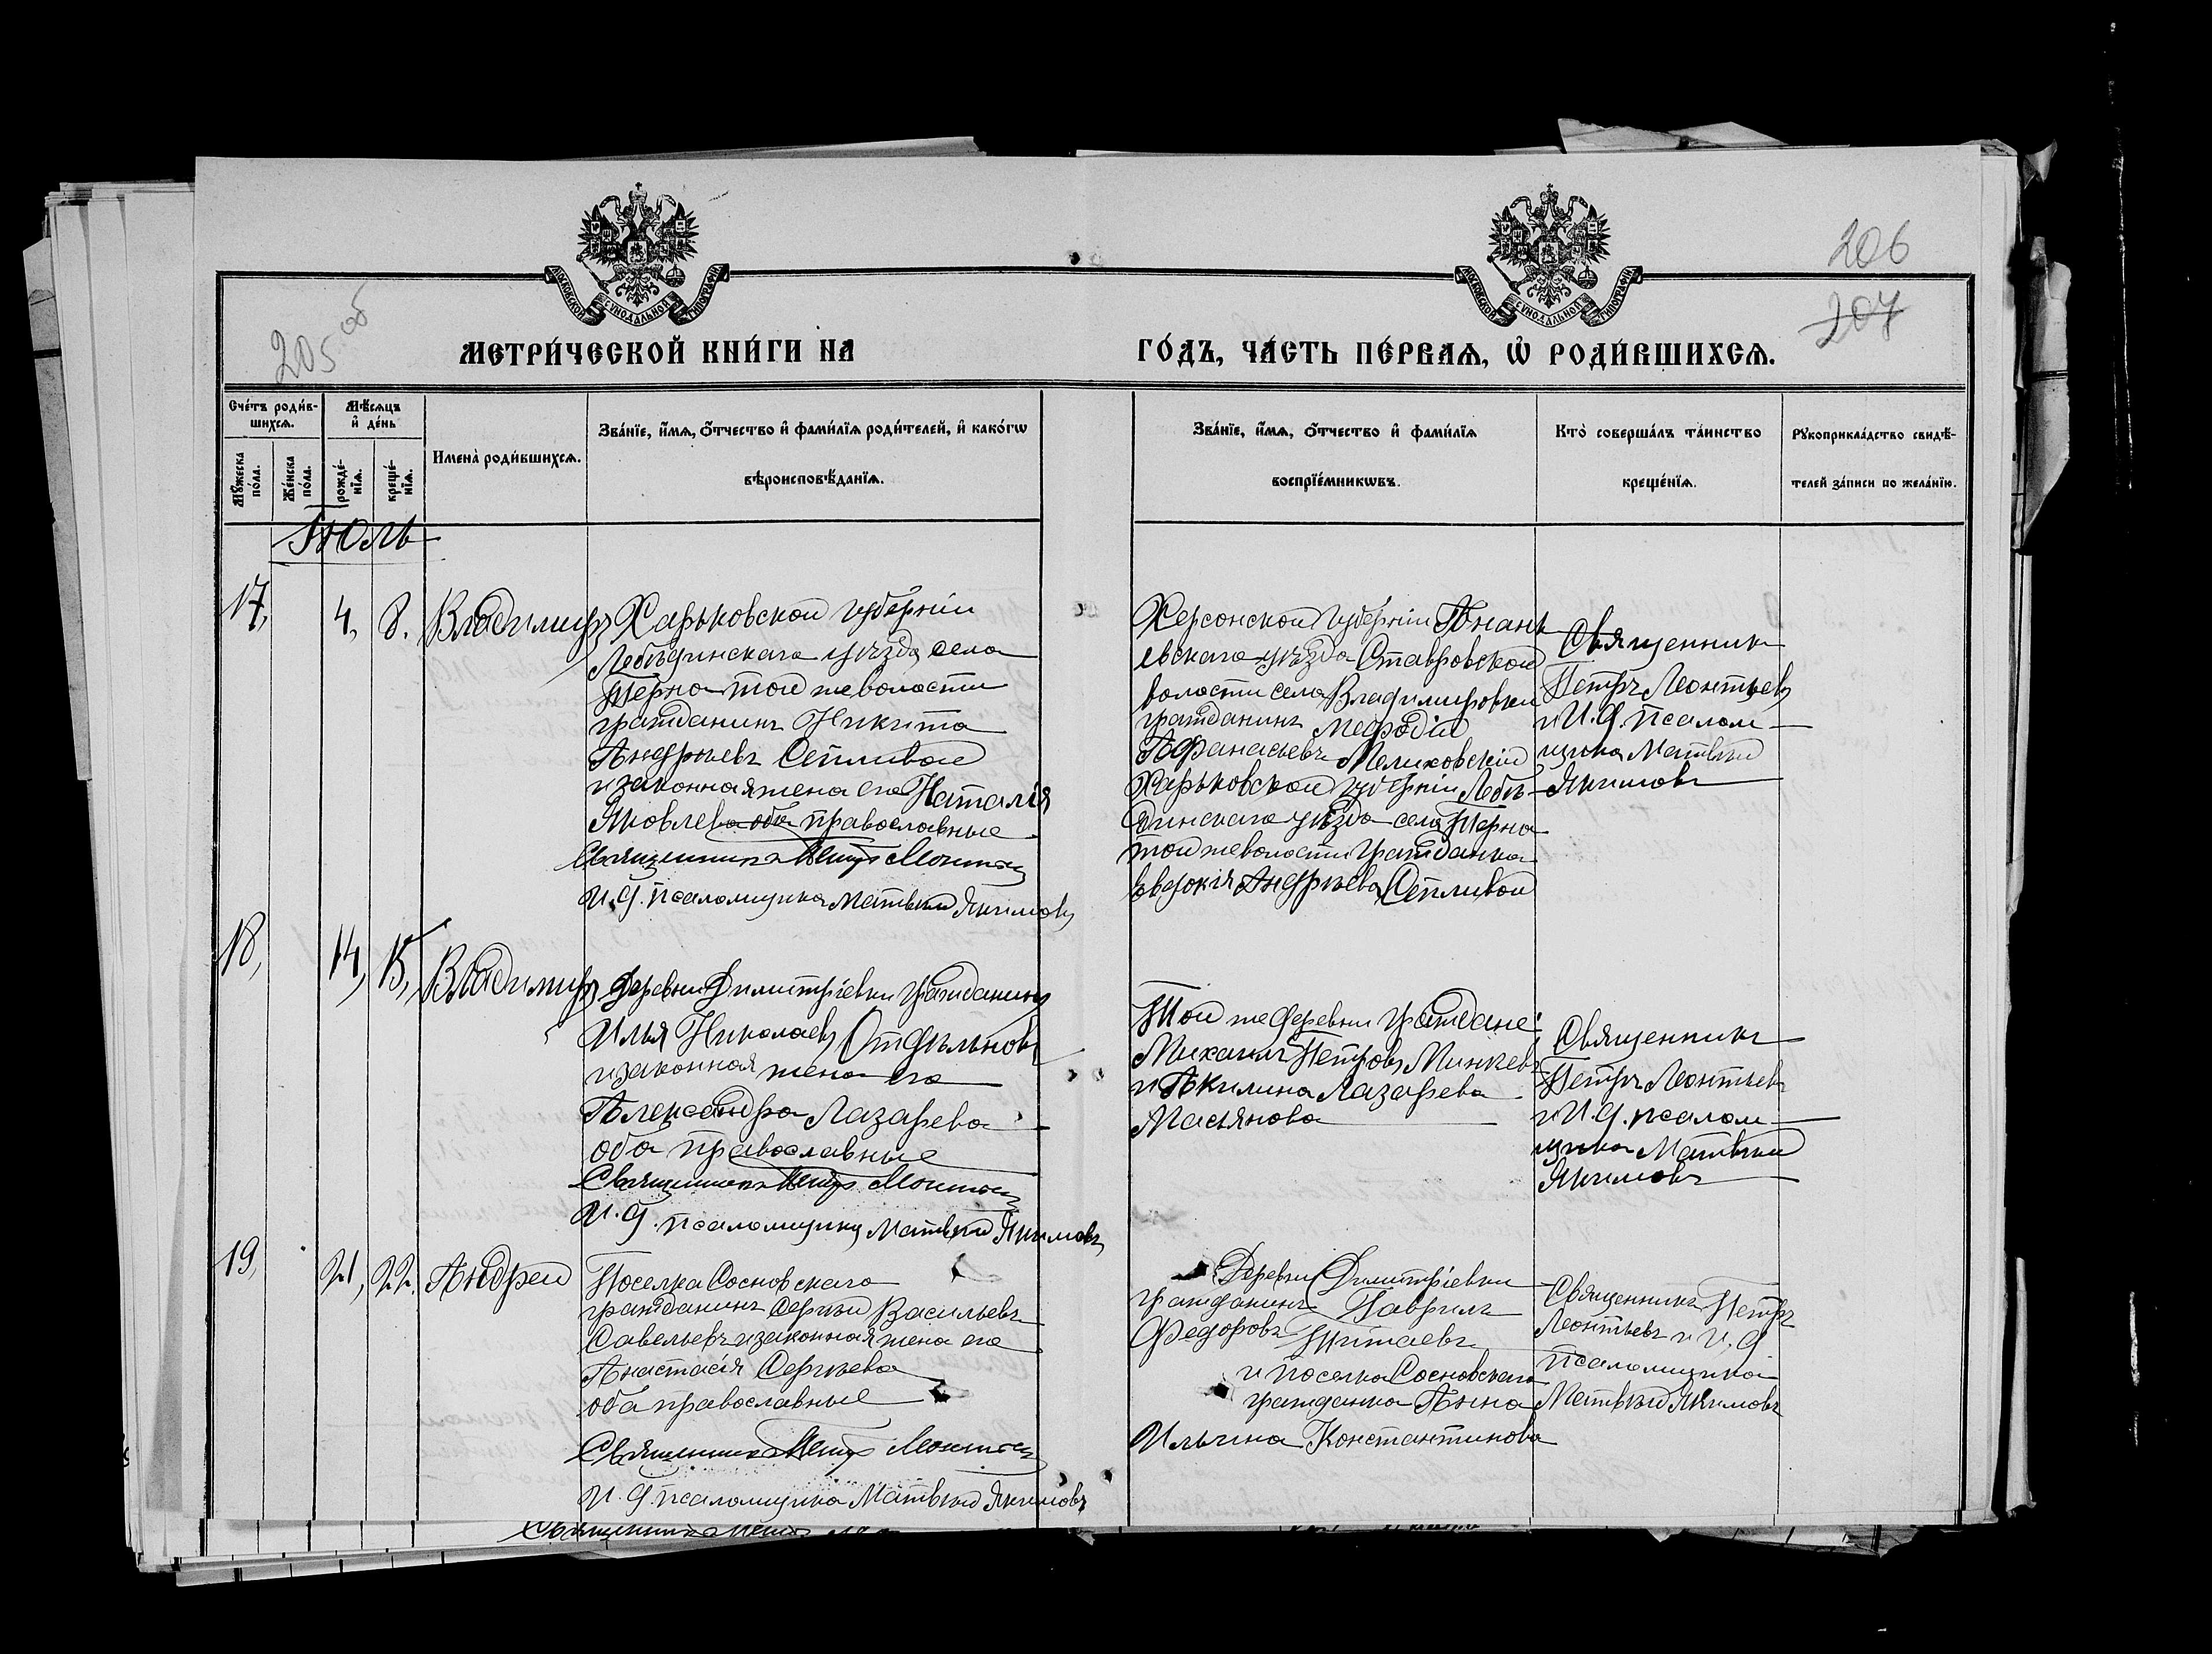 206
207
205 об
МОСКОВСКОЙ СѴНОДАЛЬНОЙ ТИПОГРАФІИ
МОСКОВСКОЙ СѴНОДАЛЬНОЙ ТИПОГРАФІИ
МЕТРИ́ЧЕСКОЙ КНИ́ГИ НА
ГО́ДЪ, ЧА́СТЬ ПЕ́РВАѦ, Ѡ҆ РОДИ́ВШИХСѦ.
Сче́тъ роди́в-
шихсѧ.
Мѣ́сѧцъ
и҆ де́нь
Мꙋ́жеска
по́ла.
Же́нска
по́ла.
рожде́-
нїѧ.
креще́-
нїѧ.
Имена̀ роди́вшихсѧ.
Зва́нїе, и҆́мѧ, ѻ҆́тчество и҆ фами́лїѧ роди́телей, и҆ како́гѡ
вѣроисповѣ́данїѧ.
Зва́нїе, и҆́мѧ, ѻ҆́тчество и҆ фами́лїѧ
воспрїе́мникѡвъ.
Кто̀ соверша́лъ та́инство
креще́нїѧ.
Рꙋкоприкла́дство свидѣ́-
телей за́писи по жела́нїю.
Іюль
17, 4, 8. Владимиръ
Харьковской губерніи
Лебѣдинскаго уѣзда села
Терно той же волости
гражданинъ Никита
Андреевъ
и законная жена его Наталія
Яковлева оба православные
Священникъ Петръ Леонтьевъ
И. д. псаломщика Матвѣй Якимовъ
Херсонской губерніи Анань
евскаго уѣзда Ставровской
волости села Владимировки
гражданинъ Мефодій
Афанасьевъ
Харьковской губерніи Лебѣ-
динскаго уѣзда села Терно
той же волости гражданка
Евдокія Андреева
Священникъ
Петръ Леонтьевъ
и И. д. псалом-
щика Матвѣй
Якимовъ
18, 14, 15, Владимиръ
Деревни Димитріевки гражданинъ
Илья Николаевъ Отдѣльновъ
и законная жена его
Александра Лазарева
оба православные
Священникъ Петръ Леонтьевъ
И. д. псаломщика Матвѣй Якимовъ
Той же деревни граждане:
Михаилъ Петровъ Минкевъ
и Акилина Лазарева
Масьянова
Священникъ
Петръ Леонтьевъ
и И. д. псалом-
щика Матвѣй
Якимовъ
19, 21, 22. Андрей
Поселка Сосновскаго
гражданинъ Сергѣй Васильевъ
Савельевъ и законная жена его
Анастасія Сергѣева
оба православные
Священникъ Петръ Леонтьевъ
И. д. псаломщика Матвѣй Якимовъ
Деревни Димитріевки
гражданинъ Гаврилъ
Федоровъ
и поселка Сосновскаго
гражданка Анна
Ильина Константинова
Священникъ Петръ
Леонтьевъ и И. д
псаломщика
Матвѣй Якимовъ